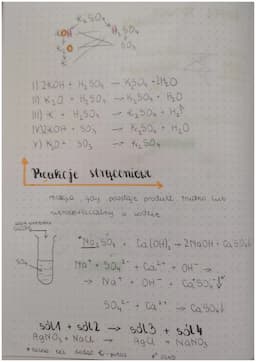 K₂SO₄
KOH H₂SO₄
K₂O SO₃
K
I) 2KOH + H₂SO₄ → K₂SO₄ + 2H₂O
II) K₂O + H₂SO₄ → K₂SO₄ + H₂O
III) K + H₂SO₄ → K₂SO₄ + H₂↑
IV) 2KOH + SO₃ → K₂SO₄ + H₂O
V) K₂O + SO₃ → K₂SO₄
Reakcje strąceniowe
zachodzą gdy powstaje produkt trudno lub
nierozpuszczalny w wodzie
*Na₂SO₄ + Ca(OH)₂ → 2NaOH + CaSO₄↓
Na⁺ + SO₄²⁻ + Ca²⁺ + OH⁻ →
→ Na⁺ + OH⁻ + CaSO₄↓
SO₄²⁻ + Ca²⁺ → CaSO₄↓
sól1 + sól2 → sól3 + sól4
AgNO₃ + NaCl → AgCl + NaNO₃